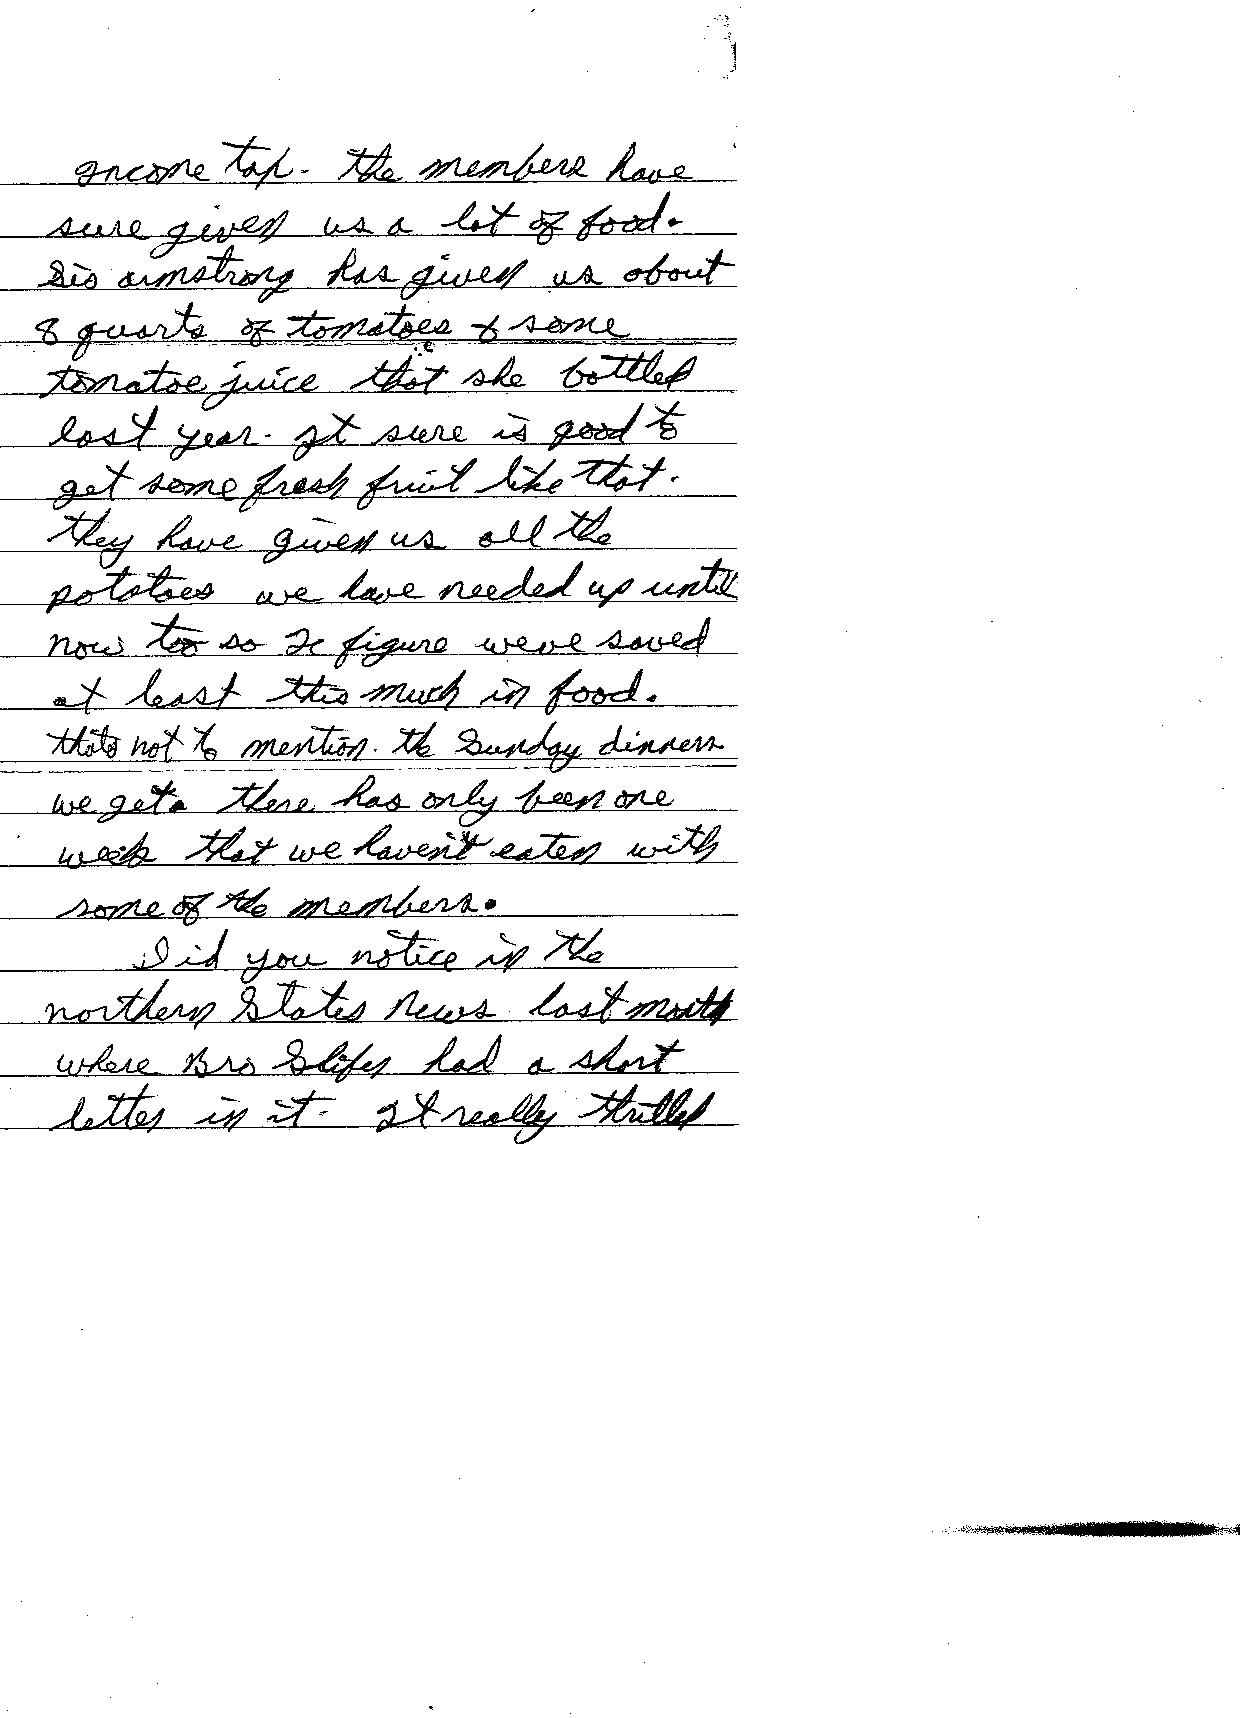 Income tax. The members have
sure given us a lot of food.
Sis Armstrong has given us about
8 quarts of tomatoes & some
tomatoe juice that she bottled
last year. It sure is good to
get some fresh fruit like that.
They have given us all the
potatoes we have needed up until
now too so I figure weve saved
at least this much in food.
thats not to mention the Sunday dinners
we get. There has only been one
week that we haven't eaten with
some of the members.
Did you notice in the
northern States News last month
where Bro had a short
letter in it. It really thrilled